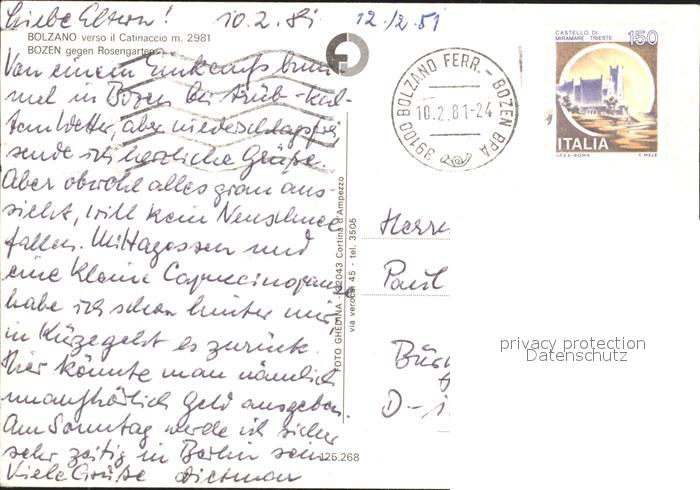 Liebe Eltern! 10.2.81 12./2.81
BOLZANO verso il Catinaccio m. 2981
BOZEN gegen Rosengarten
Von einem Einkaufsbum-
mel in Bozen bei trüb-kal-
tem Wetter, aber niederschlagsfrei
sende ich herzliche Grüße.
Aber obwohl alles grau aus-
sieht, will kein Neuschnee
fallen. Mittagessen und
eine kleine Capuccinopause
habe ich schon hinter mir,
in Kürze geht es zurück.
Hier könnte man nämlich
unaufhörlich Geld ausgeben.
Am Sonntag werde ich sicher
sehr zeitig in Berlin sein.
Viele Grüße Dietmar
126.268
FOTO GHEDINA - 32043 Cortina d'Ampezzo
via verocai 45 - tel. 3505
39100 BOLZANO FERR. - BOZEN BFA
10.2.81-24
CASTELLO DI
MIRAMARE - TRIESTE
150
ITALIA
I.P.Z.S.-ROMA T. MELE
Herrn
Paul
D-1
privacy protection
Datenschutz